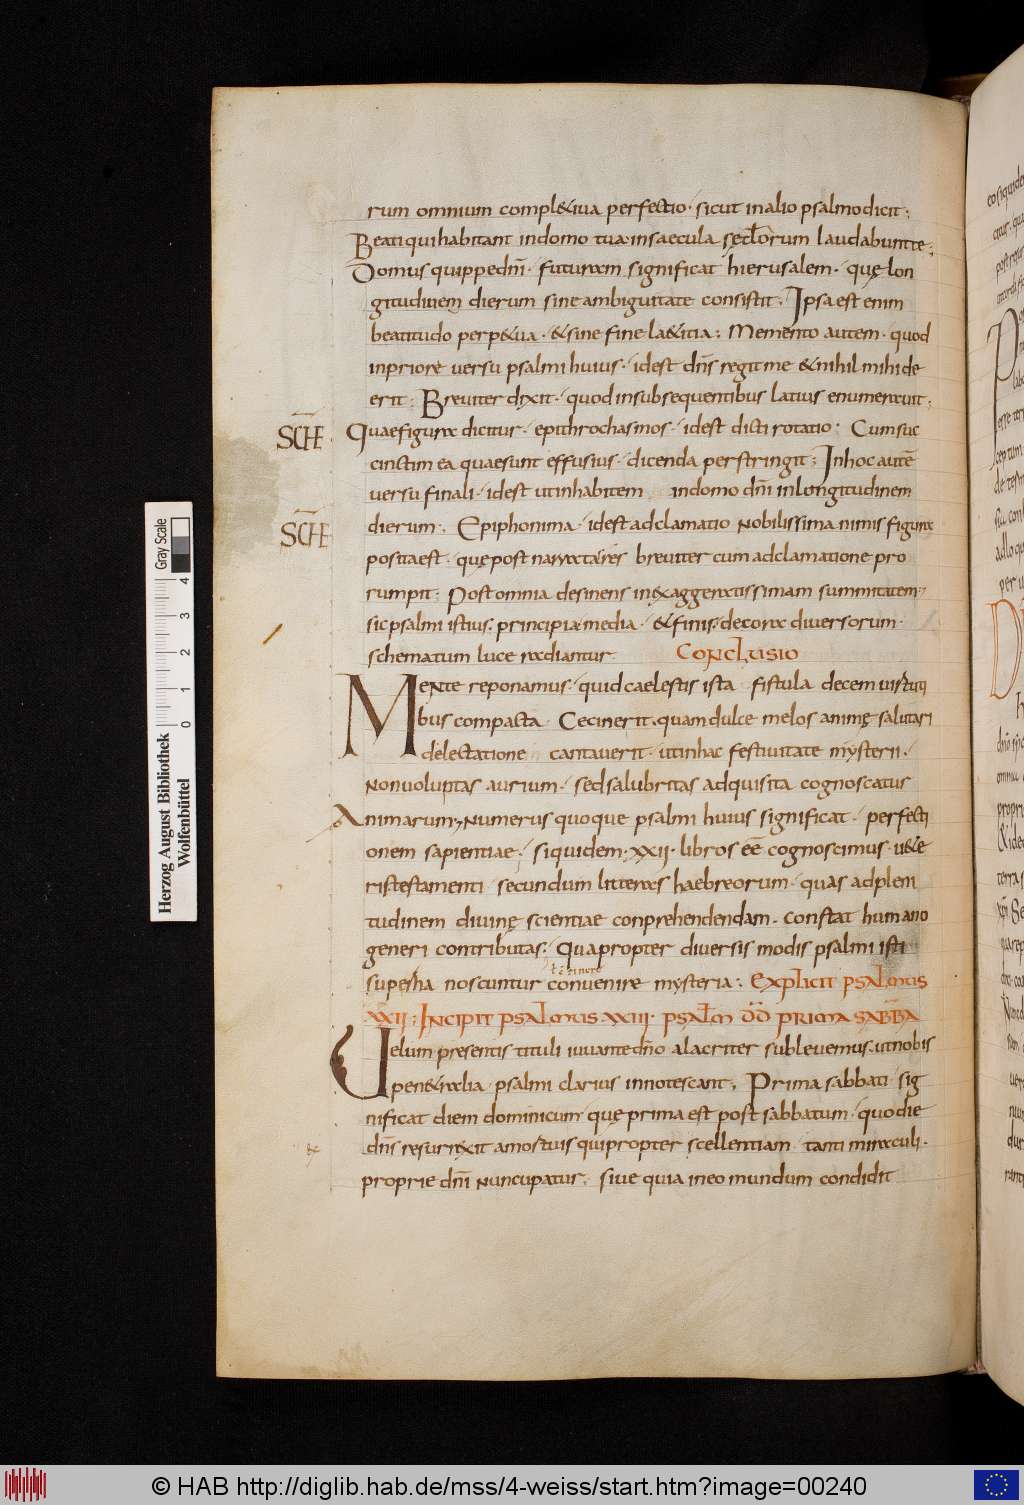 rum omnium compl&iua perfectio· sicut in alio psalmo dicit;
Beati qui habitant in domo tua in saecula sęcl̄orum laudabunt te;
Domus quippe dn̄i· futuram significat hierusalem· quę lon
gitudinem dierum sine ambiguitate consistit; Ipsa est enim
beatitudo perp&ua· & sine fine la&itia; Memento autem· quod
in priore uersu psalmi huius· id est dn̄s regit me & nihil mihi de
erit; Breuiter dixit· quod in subsequentibus latius enumerauit;
SCHE Quae figura dicitur· epithrochasmos· id est dicti rotatio; Cum suc
cinctim ea quae sunt effusius· dicenda perstringit; In hoc autē
uersu finali· id est ut inhabitem in domo dn̄i in longitudinem
SCHE dierum; Epiphonima· id est adclamatio nobilissima nimis figura
posita est· quę post narratas res breuiter cum adclamatione pro
rumpit; Post omnia desinens in exaggeratissimam summitatem
sic psalmi istius· principia media· & finis· decora diuersorum·
schematum luce radiantur CONCLUSIO
Mente reponamus· quid caelestis ista fistula decem uirtuti
bus compacta Cecinerit· quam dulce melos animę salutari
delectatione cantauerit· ut in hac festiuitate mysterii·
non uoluptas aurium· sed salubritas adquisita cognoscatur
Animarum; Numerus quoque psalmi huius significat· perfecti
onem sapientiae· siquidem· xxii· libros eē cognoscimus· u&e
ris testamenti secundum litteras haebreorum· quas ad pleni
tudinem diuinę scientiae conprehendendam· constat humano
generi contributas; Quapropter diuersis modis psalmi isti
superna noscuntur conuenire mysteria; EXPLICIT PSALMUS
XXII; INCIPIT PSALMUS XXIII· PSALM DD PRIMA SABBA
Uelum presentis tituli iuuante dn̄o alacriter subleuemus· ut nobis
pen&ralia psalmi clarius innotescant; Prima sabbati sig
nificat diem dominicum quę prima est post sabbatum· quo die
dn̄s resurrexit a mortuis qui propter scellentiam tanti miraculi·
proprie dn̄i nuncupatur; siue quia in eo mundum condidit
Herzog August Bibliothek
Wolfenbüttel
0 1 2 3 4
Gray Scale
© HAB http://diglib.hab.de/mss/4-weiss/start.htm?image=00240